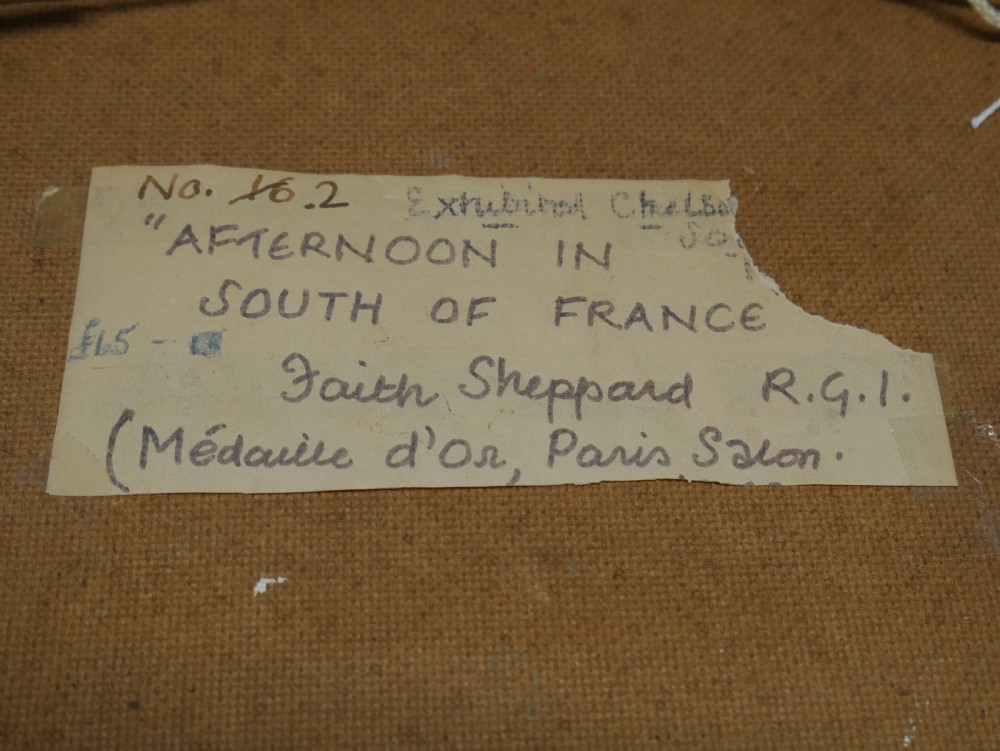 No. 16.2 Exhibited Chelsea
"AFTERNOON IN
SOUTH OF FRANCE
£15 -
Faith Sheppard R.G.I.
(Médaille d'Or, Paris Salon.